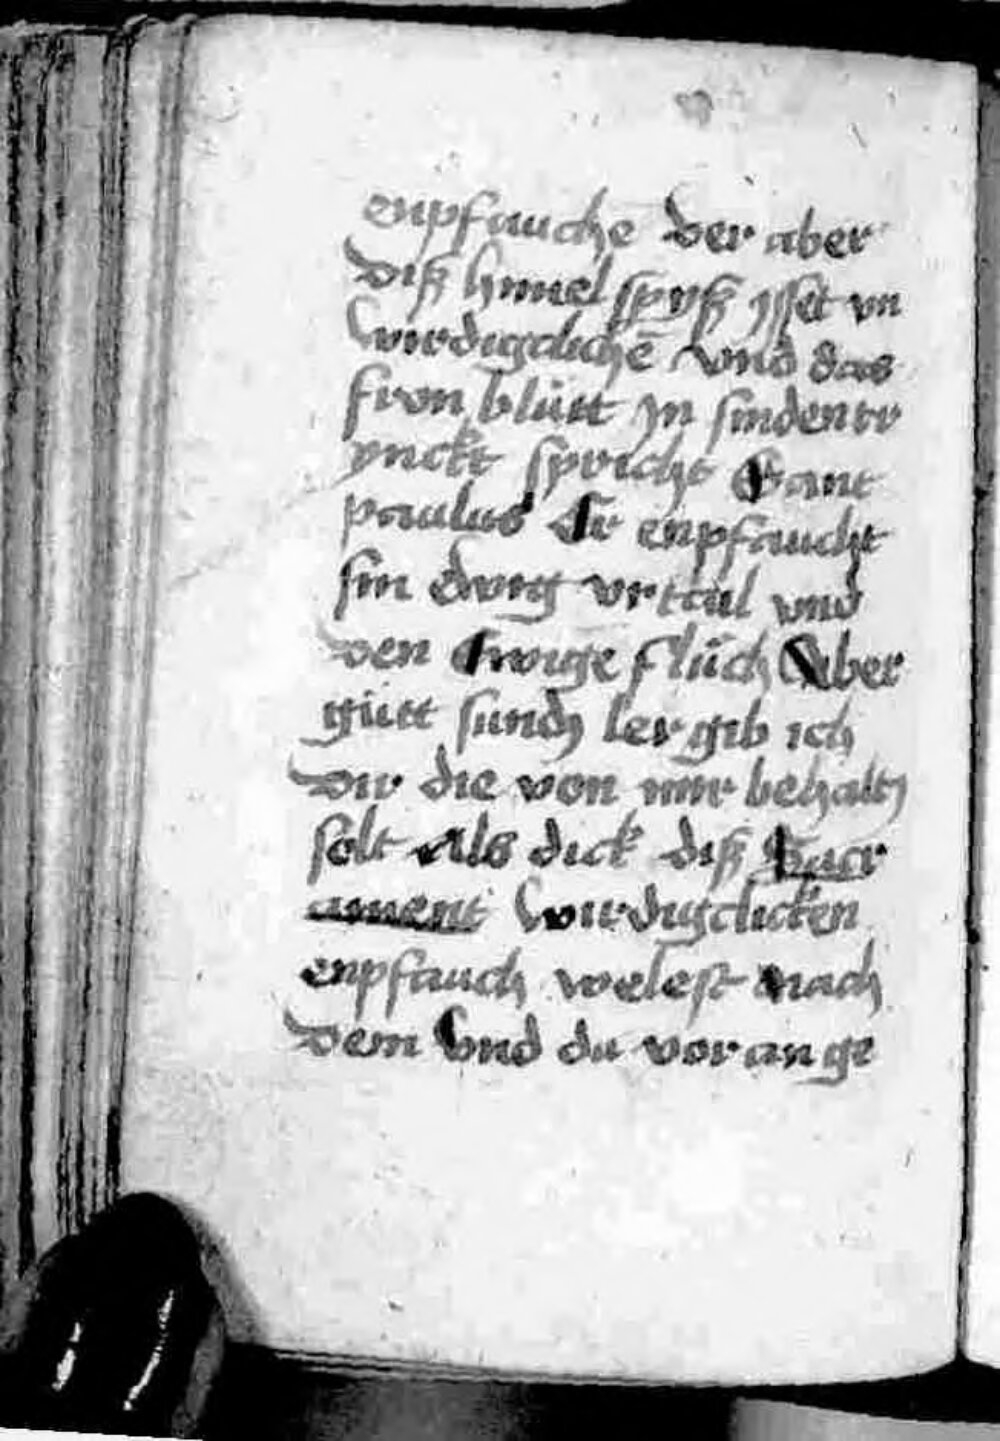 enpfauchē der aber
diß himel spyß ysset vn
wirdigclichē vnd das
fron blůtt yn sinden tr
ynckt spricht Sant
paulus Er enpfaucht
sin ewig vrtail vnd
den Ewige flůch Aber
gůtt sundy ler gib ich
dir die von mir behalty
solt Als dick diß Sacr
ament wirdigclicken
enpfauch welest nach
dem vnd du vor an ge